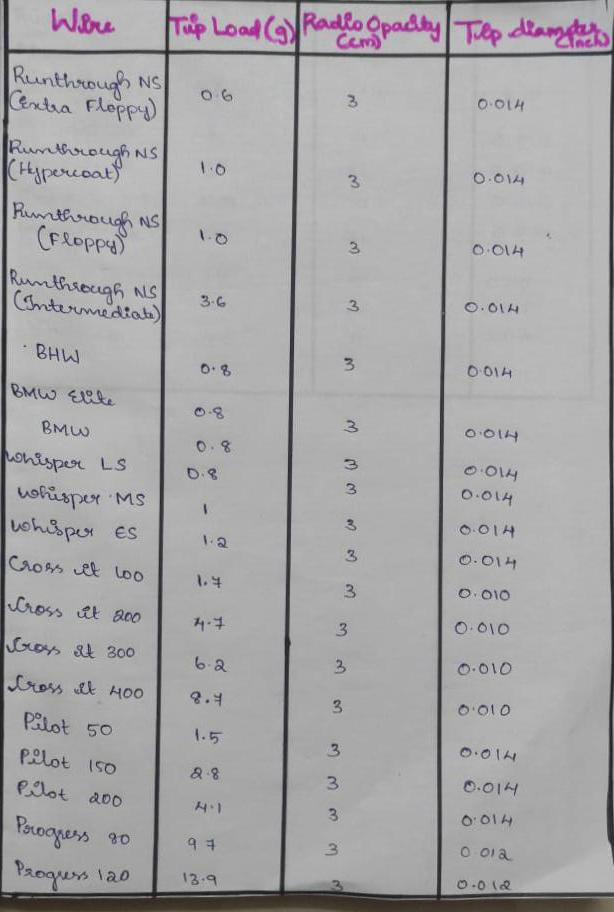 Wire Tip Load (g) Radio Opacity (cm) Tip diameter (Inch)
Runthrough NS (Extra Floppy) 0.6 3 0.014
Runthrough NS (Hypercoat) 1.0 3 0.014
Runthrough NS (Floppy) 1.0 3 0.014
Runthrough NS (Intermediate) 3.6 3 0.014
BHW 0.8 3 0.014
BMW Elite 0.8 3 0.014
BMW 0.8 3 0.014
Whisper LS 0.8 3 0.014
Whisper MS 1 3 0.014
Whisper ES 1.2 3 0.014
Cross it 100 1.7 3 0.010
Cross it 200 4.7 3 0.010
Cross it 300 6.2 3 0.010
Cross it 400 8.7 3 0.010
Pilot 50 1.5 3 0.014
Pilot 150 2.8 3 0.014
Pilot 200 4.1 3 0.014
Progress 80 9 7 3 0 012
Progress 120 13.9 3 0.012